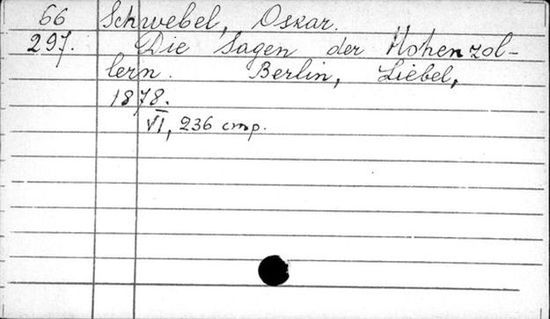 66 Schwebel, Oskar.
297. Die Sagen der Hohenzol-
lern. Berlin, Liebel,
1878.
VI, 236 стр.